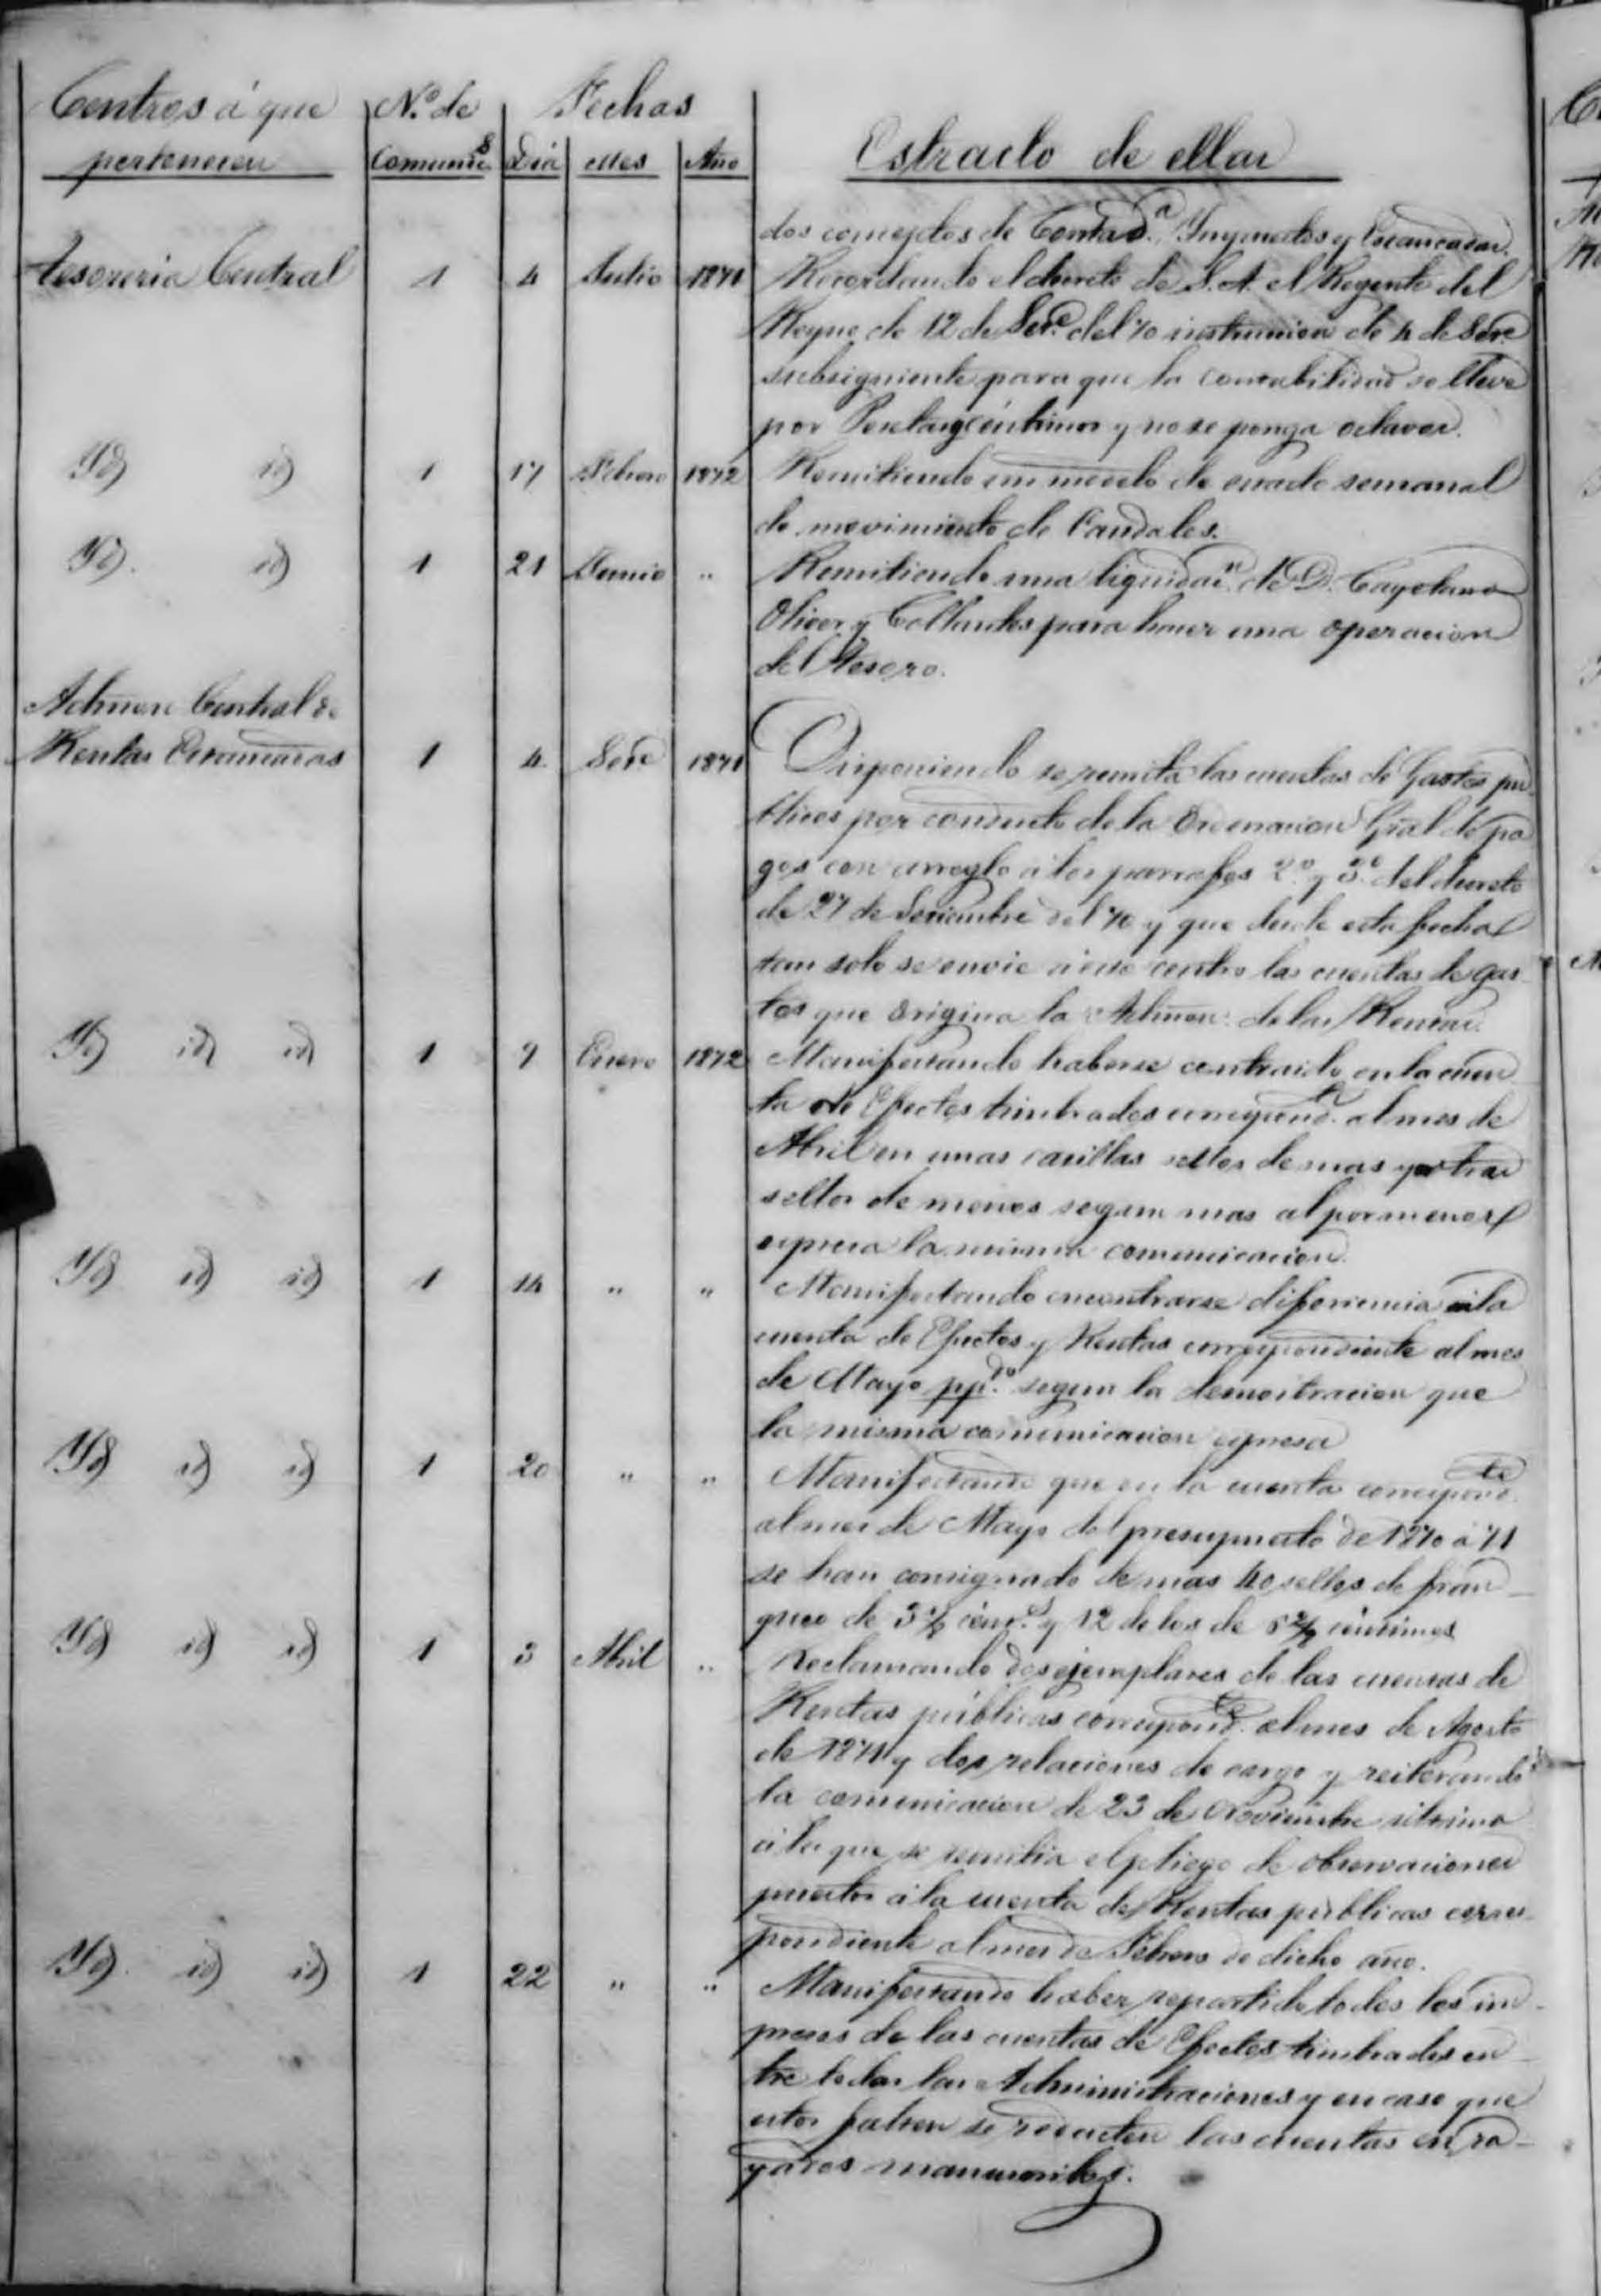 Centros á que N.º de Fechas
pertenecen Comunic.s Dia Mes Año Estracto de ellas
dos conceptos de Contad.a, Impuestos y Estancadas.
Tesoreria Central 1 4 Julio 1871 Recordando el decreto de S. A. el Regente del
Reyno de 12 de Set.e del 70 instruccion de 4 de Set.e
subsiguiente para que la contabilidad se lleve
por Pesetas y céntimos y no se ponga octavos.
Id id 1 17 Febrero 1872 Remitiendo un modelo de estado semanal
de movimiento de Caudales.
Id. id 1 21 Junio " Remitiendo una liquidac.n de D. Cayetano
Oliver y Collantes para hacer una operacion
del Tesoro.
Admon Central de
Rentas Estancadas 1 4 Set.e 1871 Disponiendo se remita las cuentas de Gastos pu
blicos por conducto de la Ordenacion Gral de pa
gos con arreglo á los parrafos 2.º y 3.º del decreto
de 27 de Setiembre del 70 y que desde esta fecha
tan solo se envie á este centro las cuentas de gas
tos que origina la Admon. de las Rentas.
Id id id 1 9 Enero 1872 Manifestando haberse contraido en la cuen
ta de Efectos timbrados correspond.te al mes de
Abril en unas casillas sellos de mas y otras
sellos de menos segun mas al pormenor
espresa la misma comunicacion.
Id id id 1 14 " " Manifestando encontrarse diferencia en la
cuenta de Efectos y Rentas correspondiente al mes
de Mayo pp.do segun la demostracion que
la misma comunicacion espresa
Id id id 1 20 " " Manifestando que en la cuenta correspond.te
al mes de Mayo del presupuesto de 1870 á 71
se han consignado de mas 40 sellos de fran-
queo de 3 cent.s y 12 de los de 6 céntimos
Id id id 1 3 Abril " Reclamando dos ejemplares de las cuentas de
Rentas públicas correspond.te al mes de Agosto
de 1871 y dos relaciones de cargo y reiterando
la comunicacion de 23 de Noviembre ultimo
á la que se remitia el pliego de observaciones
puestos á la cuenta de Rentas públicas corres-
pondiente al mes de Febrero de dicho año.
Id. id id 1 22 " " Manifestando haber repartido todos los im-
presos de las cuentas de Efectos timbrados en-
tre todas las Administraciones y en caso que
estos falten se redacten las cuentas en ra-
yados manuscritos.